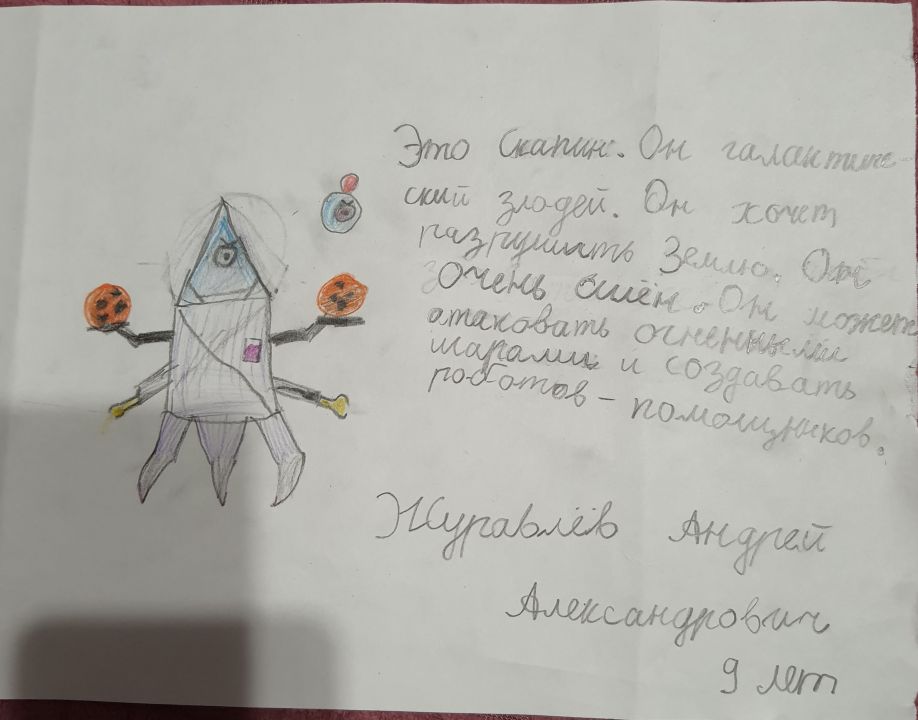 Это Скапин. Он галактиче-
ский злодей. Он хочет
разрушить Землю. Он
очень силён. Он может
атаковать огненными
шарами и создавать
роботов - помощников.
Журавлёв Андрей
Александрович
9 лет